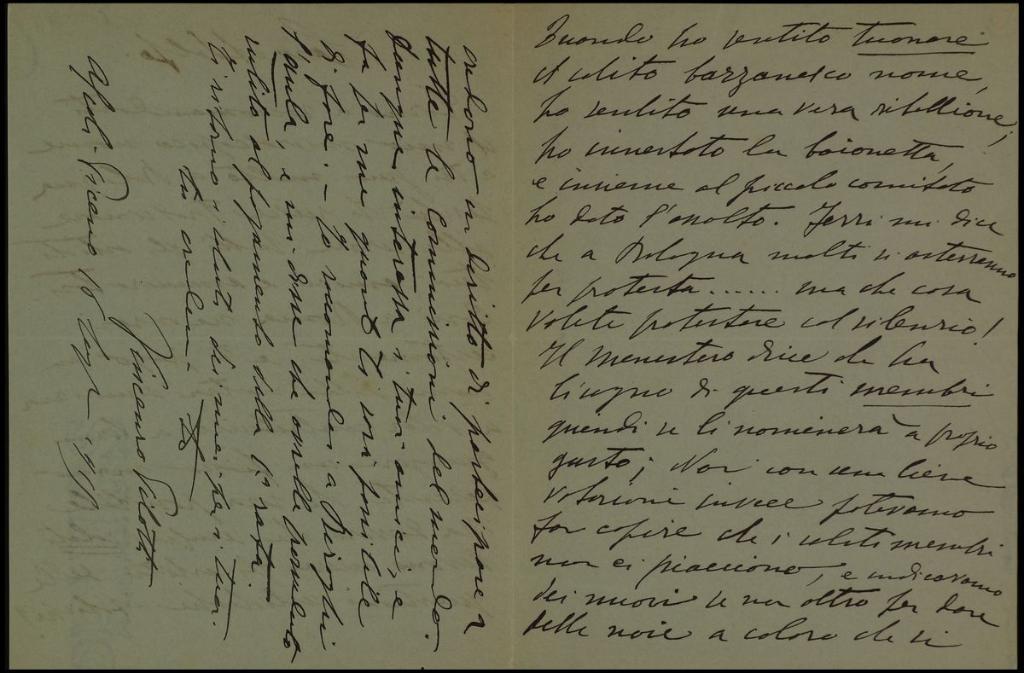 Quando ho sentito tuonare
il solito bazzanesco nome,
ho sentito una vera ribellione,
ho innestato la baionetta,
e insieme al piccolo comitato
ho dato l'assalto. Ferri mi dice
che a Bologna molti si asterranno
per protesta...... ma che cosa
volete protestare col silenzio!
Il menestero dice che ha
bisogno di questi membri
quendi se li nominerà a proprio
gusto; Noi con una bene
votazione invece potevamo
far capire che i soliti membri
non ci piacciono, e indicavamo
dei nuovi se non altro per dare
delle noie a coloro che si
credono in diritto di partecipare a
tutte le Commissioni del mondo.
Dunque interessa i tuoi amici, e
fa per me quanto ti sarà possibile
di fare. - Ti raccomandai a
l'aula, e mi disse che avrebbe pensato
subito al pagamento della 1ª rata.
Ti ritorno i saluti di mia
tu credimi
Vincenzo Pilotti
Ascoli-Piceno